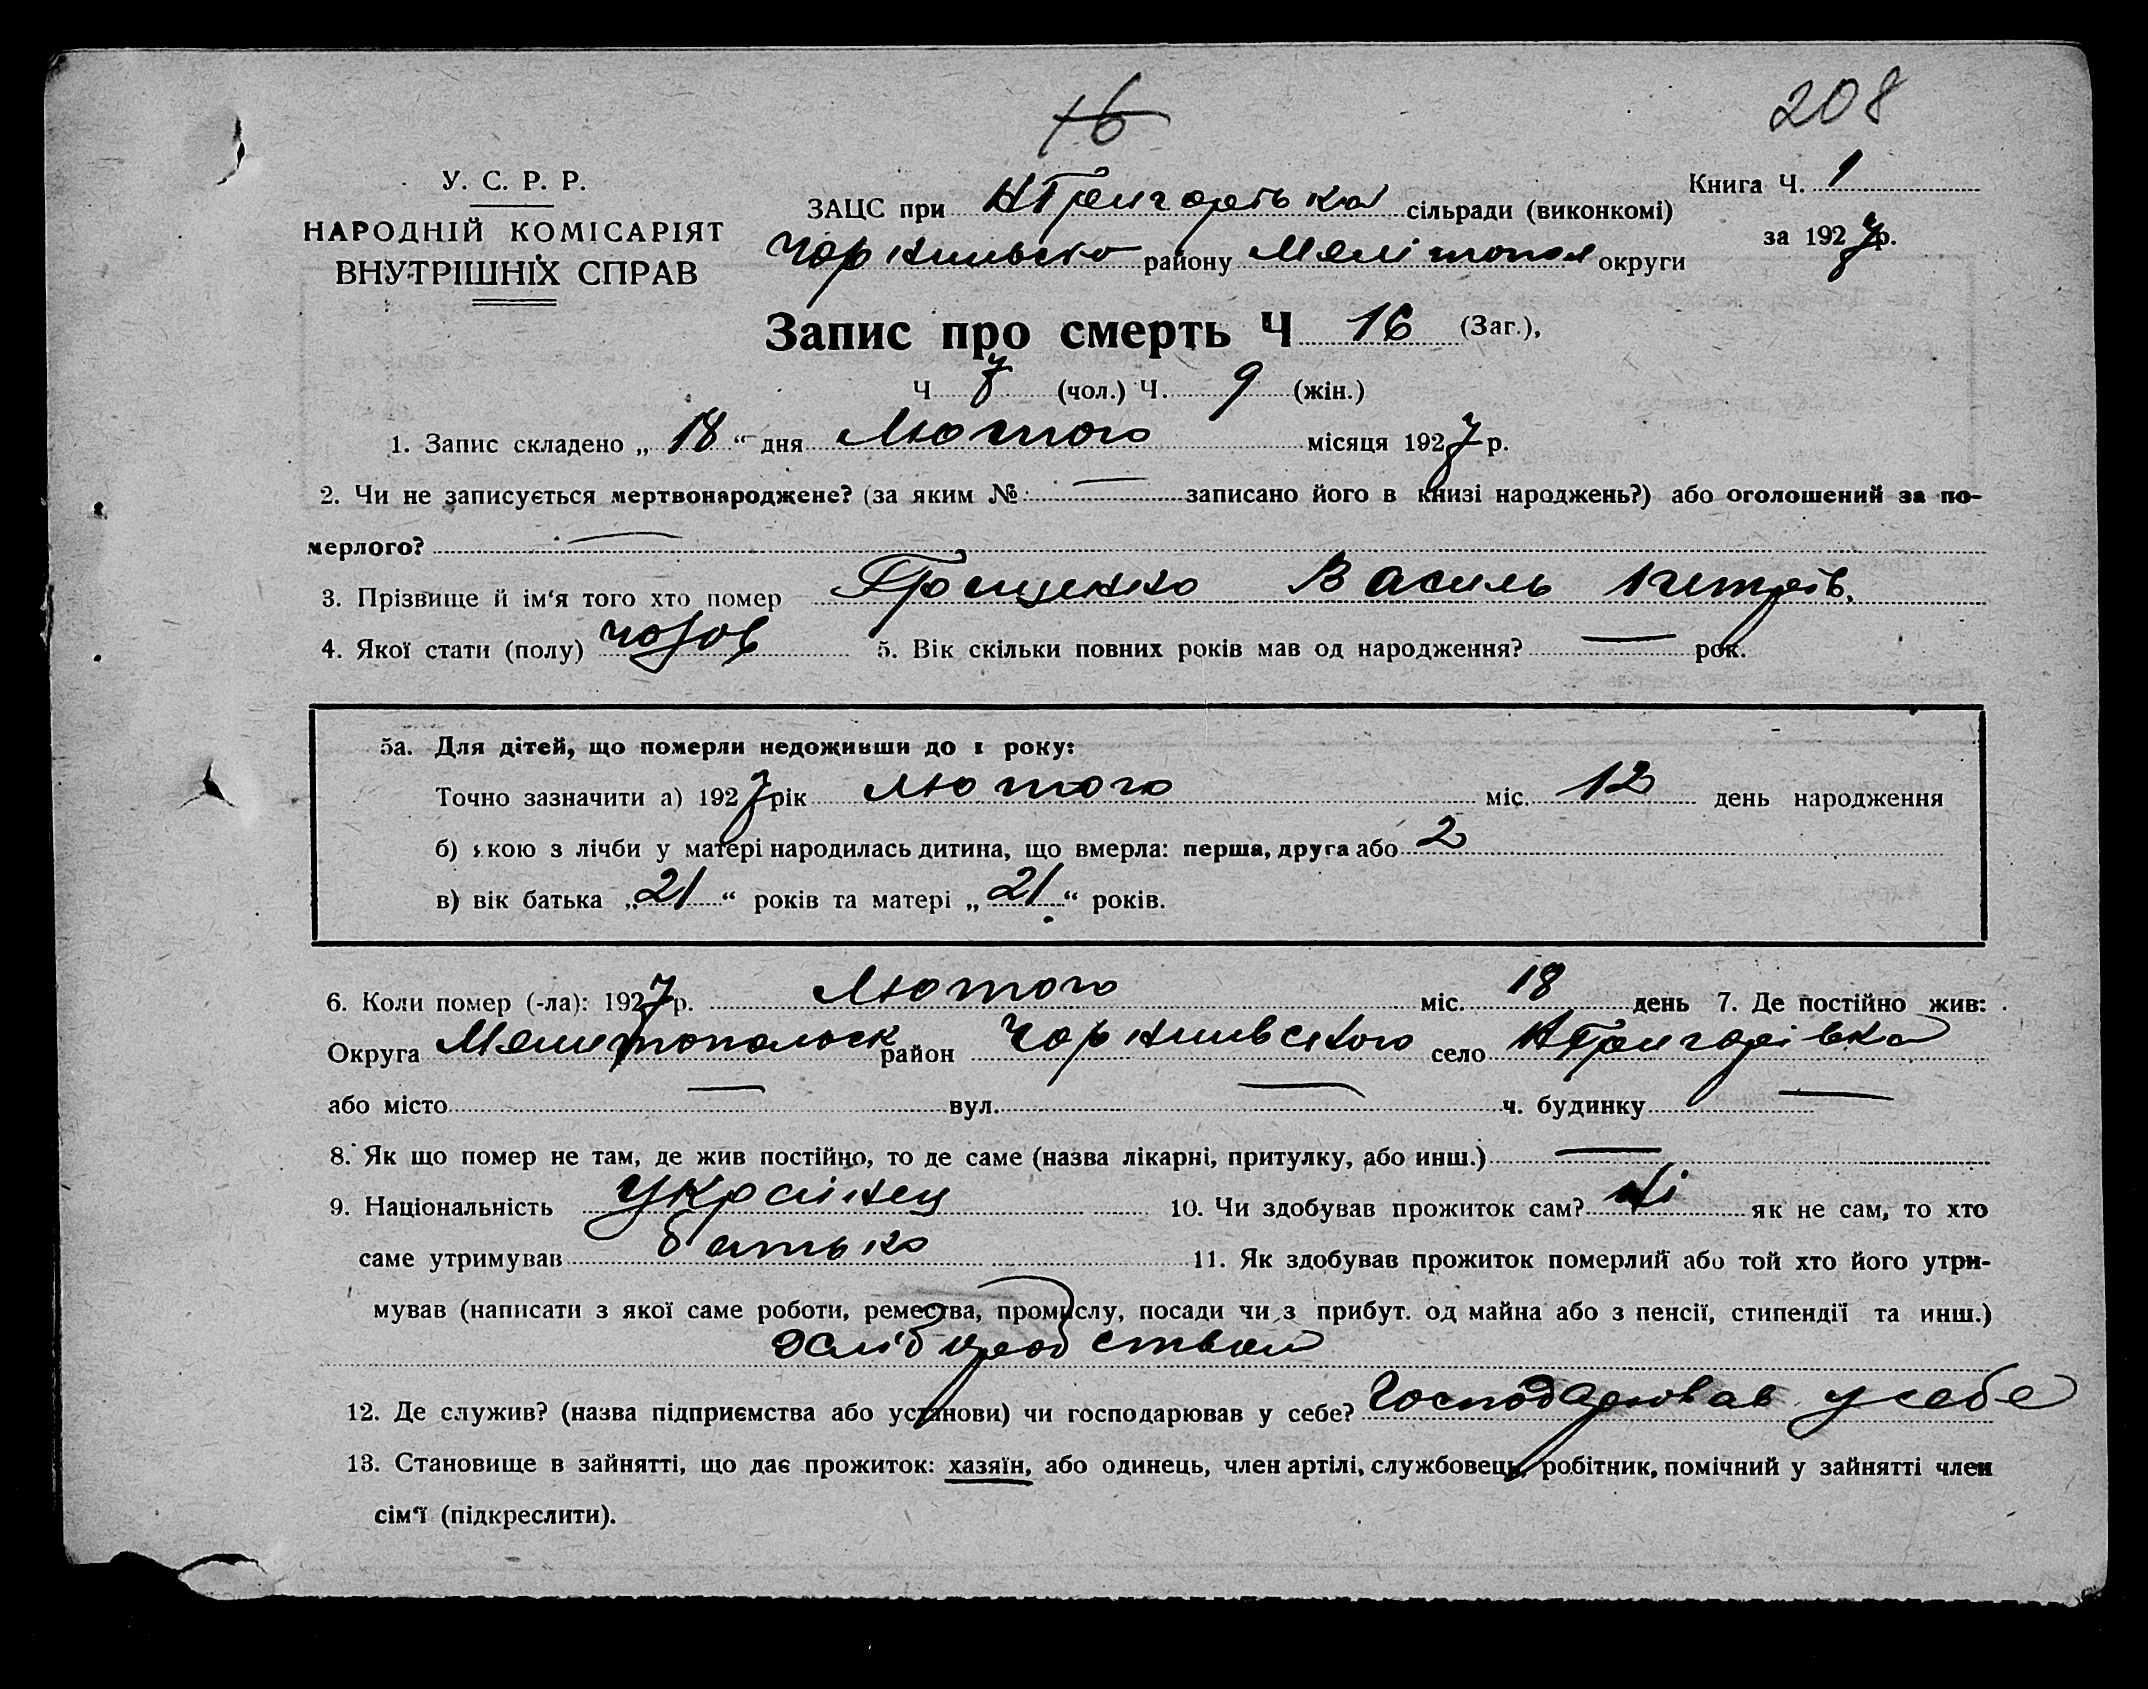 16
208
У. С. Р. Р.
НАРОДНІЙ КОМІСАРІЯТ
ВНУТРІШНІХ СПРАВ
ЗАЦС при НГригорівка сільради (виконкомі)
Книга Ч. 1
за 1927 р.
району Мелітопол округи
Запис про смерть Ч 16 (Заг.),
Ч 7 (чол.) Ч. 9 (жін.)
1. Запис складено „ 18 “ дня Лютого місяця 1927 р.
2. Чи не записується мертвонароджене? (за яким № — записано його в книзі народжень?) або оголошений за по-
мерлого? —
3. Прізвище й ім‘я того хто помер Грищенко Василь Петрів.
4. Якої стати (полу) чолов 5. Вік скільки повних років мав од народження? — рок.
5а. Для дітей, що померли недоживши до 1 року:
Точно зазначити а) 1927 рік лютого міс. 12 день народження
б) якою з лічби у матері народилась дитина, що вмерла: перша, друга або 2
в) вік батька „ 21 “ років та матері „ 21 “ років.
6. Коли помер (-ла): 1927 р. Лютого міс. 18 день 7. Де постійно жив:
Округа Мелитопольск район село НГригорівка
або місто — вул. — ч. будинку —
8. Як що помер не там, де жив постійно, то де саме (назва лікарні, притулку, або инш.) —
9. Національність Українец 10. Чи здобував прожиток сам? Ні як не сам, то хто
саме утримував батько 11. Як здобував прожиток померлий або той хто його утри-
мував (написати з якої саме роботи, ремества, промислу, посади чи з прибут. од майна або з пенсії, стипендії та инш.)
12. Де служив? (назва підприємства або установи) чи господарював у себе? Господарював у себе
13. Становище в зайнятті, що дає прожиток: хазяїн, або одинець, член артілі, службовець, робітник, помічний у зайнятті член
сім‘ї (підкреслити).